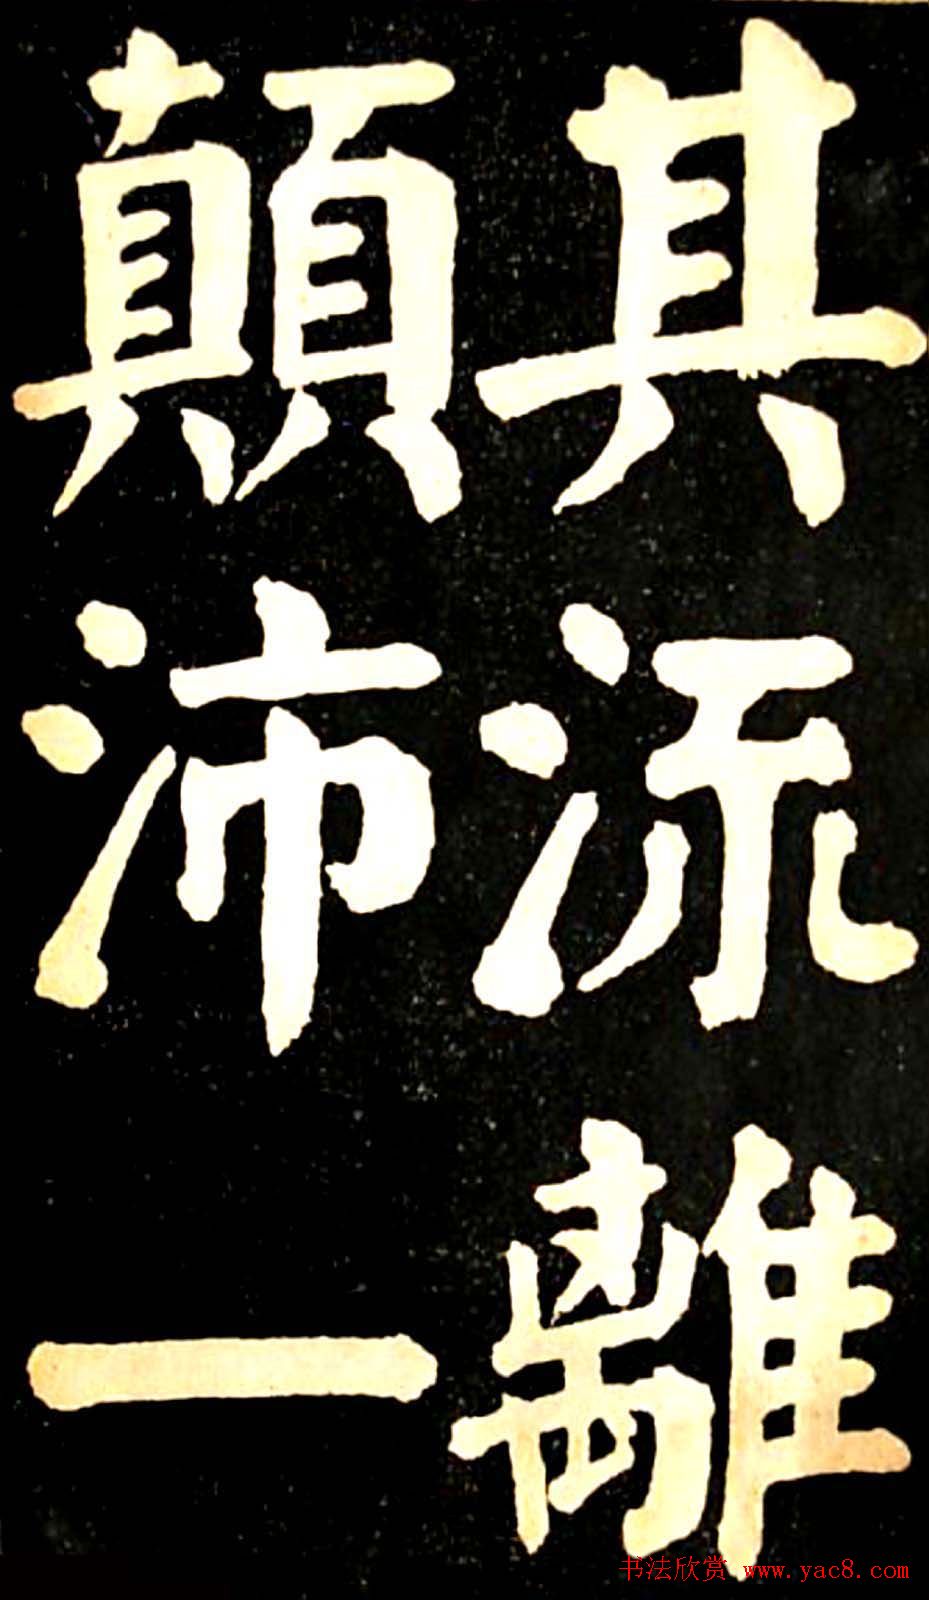 其流離
顛沛一
书法欣赏 www.yac8.com